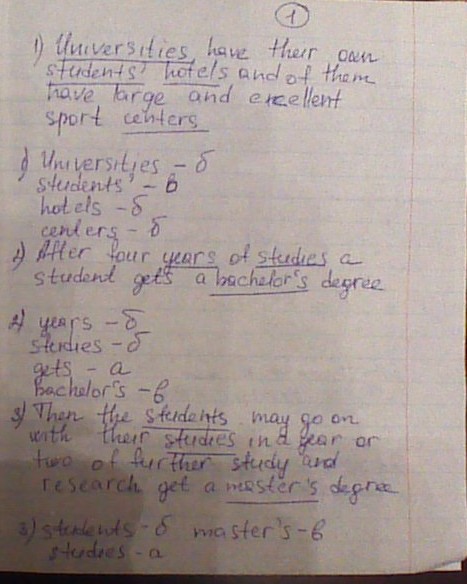 1
1) Universities have their own
students' hotels and of them
have large and excellent
sport centers
1) Universities - б
students' - в
hotels - б
centers - б
2) After four years of studies a
student gets a bachelor's degree
2) years - б
studies - б
gets - а
bachelor's - в
3) Then the students may go on
with their studies in a year or
two of further study and
research get a master's degree
3) students - б master's - в
studies - а